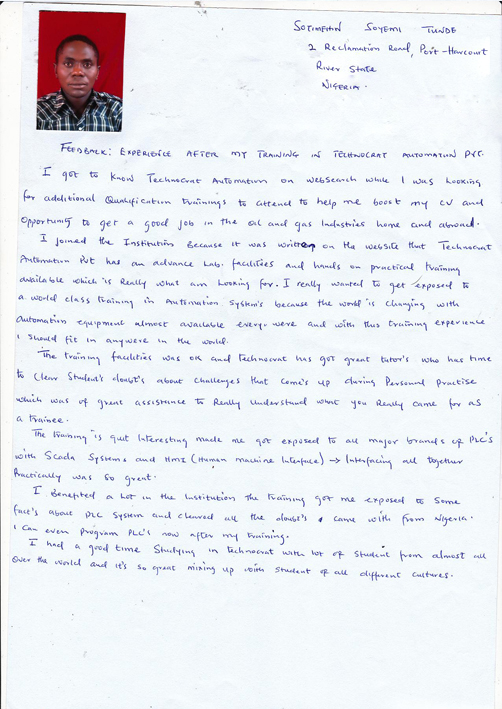 SOTIMEHIN SOYEMI TUNDE
2 Reclamation Road, Port-Harcourt
River State
NIGERIA.
FEEDBACK: EXPERIENCE AFTER MY TRAINING IN TECHNOCRAT AUTOMATION PVT.
I got to know Technocrat Automation on websearch while I was looking
for additional Qualification trainings to attend to help me boost my CV and
opportunity to get a good job in the oil and gas Industries home and abroad.
I joined the Institution Because it was written on the website that Technocrat
Automation Pvt has an advance Lab. facilities and hands on practical training
available which is Really what am looking for. I really wanted to get exposed to
a world class training in Automation system's because the world is changing with
automation equipment almost available every were and with this training experience
I should fit in anywere in the world.
The training facilities was ok and technocrat has got great tutor's who has time
to clear student's doubt's about challenges that come's up during Personal practise
which was of great assistance to Really understand what you Really came for as
a trainee.
The training is quit Interesting made me got exposed to all major brands of PLC's
with Scada Systems and HMI (Human machine Interface) → Interfacing all together
Practically was so great.
I Benefited a lot in the Institution the training got me exposed to some
fact's about PLC system and cleared all the doubt's I came with from Nigeria.
I can even program PLC's now after my training.
I had a good time studying in technocrat with lot of student from almost all
over the world and it's so great mixing up with student of all different cultures.